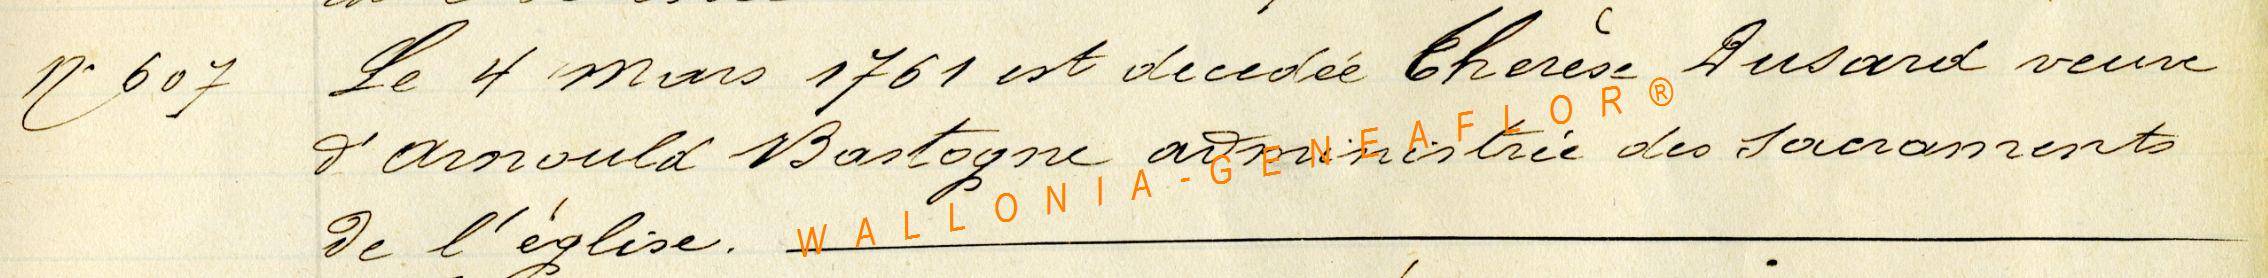 N° 607 Le 4 Mars 1761 est decedée Thérèse Dusard veuve
d'Arnould Bastogne administrée des Sacraments
de l'église.
WALLONIA-GENEAFLOR®